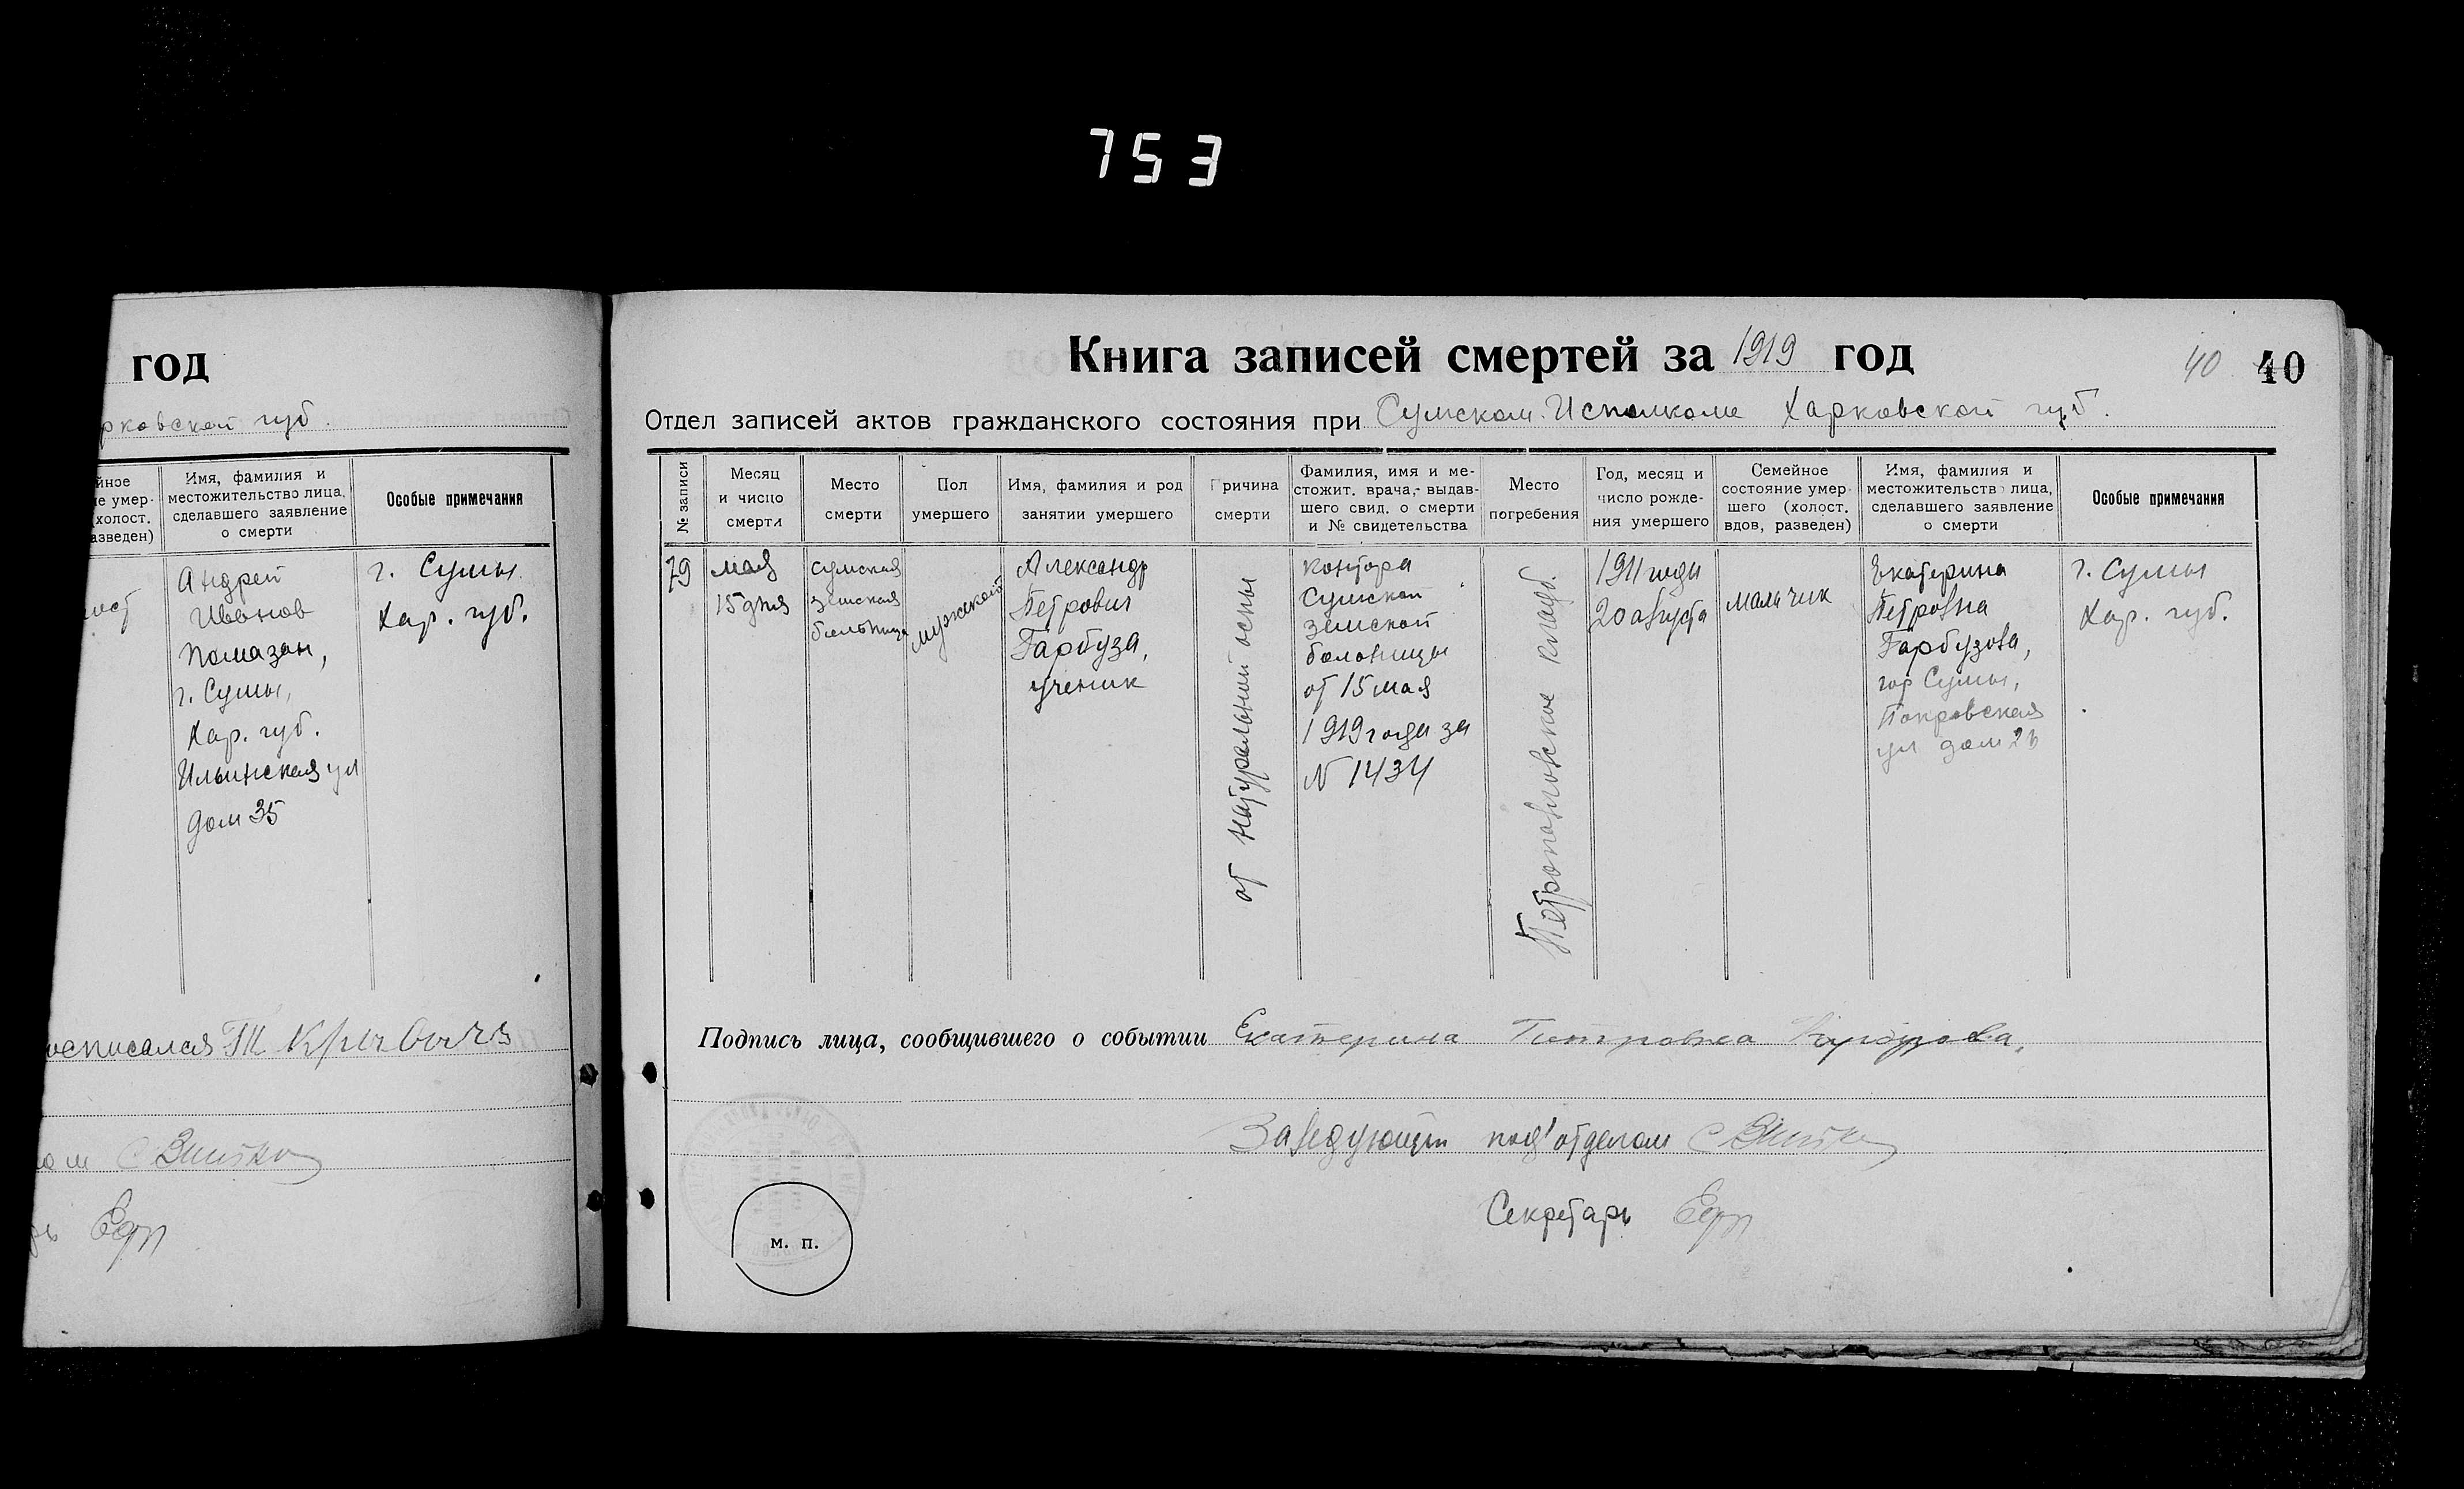 753
год
рковской губ.
йное
е умер-
(холост.
азведен)
Имя, фамилия и
местожительство лица,
сделавшего заявление
о смерти
Особые примечания
Андрей
Иванов
Помазан,
г. Сумы,
Хар. губ.
Ильинская ул
дом 35
г. Сумы
Хар. губ.
Книга записей смертей за 1919 год
40 40
Отдел записей актов гражданского состояния при Сумском Исполкоме Харковской губ.
№ записи
Месяц
и число
смерти
Место
смерти
Пол
умершего
Имя, фамилия и род
занятии умершего
Причина
смерти
Фамилия, имя и ме-
стожит. врача,- выдав-
шего свид. о смерти
и № свидетельства
Место
погребения
Год, месяц и
число рожде-
ния умершего
Семейное
состояние умер-
шего (холост.
вдов, разведен)
Имя, фамилия и
местожительство лица,
сделавшего заявление
о смерти
Особые примечания
79
мая
15 дня
сумская
земская
больница
мужской
Александр
Петрович
Гарбуза,
ученик
от натуральной оспы
контора
Сумской
земской
больницы
от 15 мая
1919 года за
N 1434
Петропавловское кладб.
1911 года
20 августа
мальчик
Екатерина
Петровна
Гарбузова,
гор Сумы,
Покровская
ул дом
г. Сумы
Хар. губ.
Подпись лица, сообщившего о событии Екатерина Петровна
Заведующий под'отделом
Секретарь
м. п.